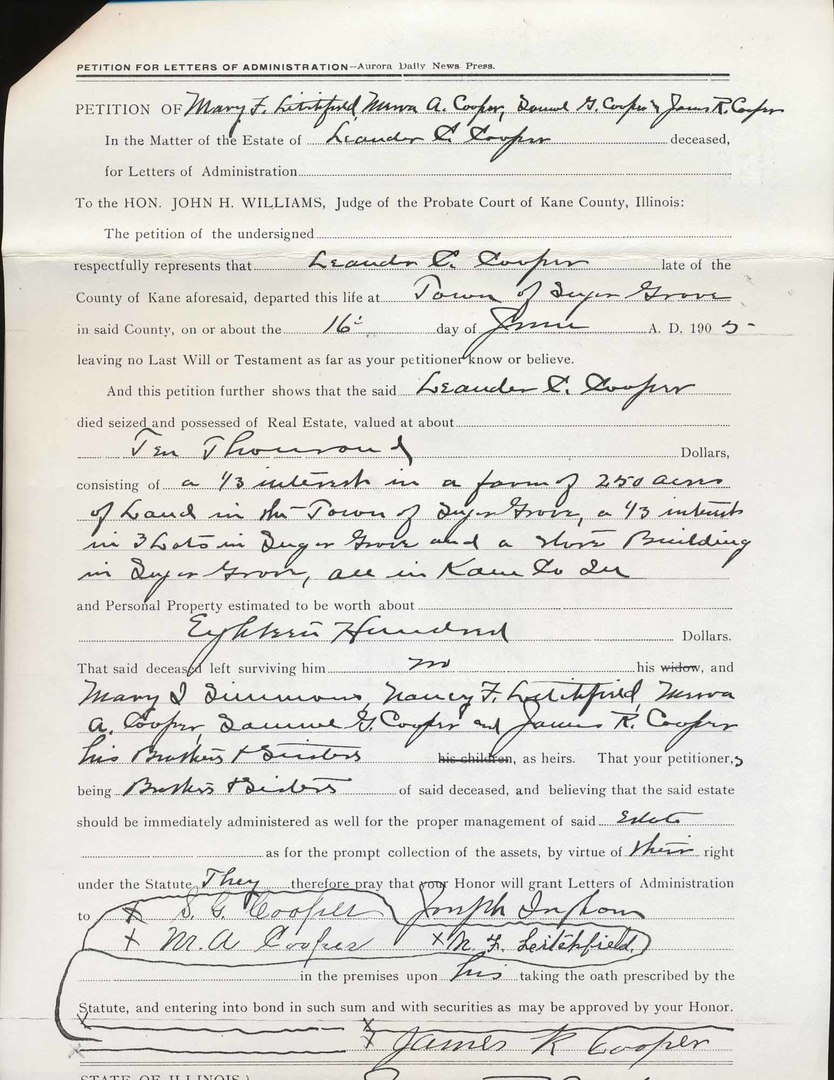 PETITION FOR LETTERS OF ADMINISTRATION—Aurora Daily News Press.
PETITION OF Mary F. Litchfield, A. Cooper, Samuel G. Cooper & James R. Cooper
In the Matter of the Estate of Leander C. Cooper deceased,
for Letters of Administration
To the HON. JOHN H. WILLIAMS, Judge of the Probate Court of Kane County, Illinois:
The petition of the undersigned
respectfully represents that Leander C. Cooper late of the
County of Kane aforesaid, departed this life at Town of Sugar Grove
in said County, on or about the 16 day of June A. D. 1905
leaving no Last Will or Testament as far as your petitioner know or believe.
And this petition further shows that the said Leander C. Cooper
died seized and possessed of Real Estate, valued at about
Ten Thousand Dollars,
consisting of a 1/3 interest in a farm of 250 acres
of Land in the Town of Sugar Grove, a 1/3 interest
in 3 Lots in Sugar Grove and a Store Building
in Sugar Grove, all in Kane Co Ill
and Personal Property estimated to be worth about
Eighteen Hundred Dollars.
That said deceased left surviving him no his widow, and
Mary J Simmons, Nancy F. Litchfield,
A. Cooper, Samuel G. Cooper and James R. Cooper
his Brothers & Sisters his children, as heirs. That your petitioner,s
being Brothers & Sisters of said deceased, and believing that the said estate
should be immediately administered as well for the proper management of said Estate
as for the prompt collection of the assets, by virtue of their right
under the Statute They therefore pray that your Honor will grant Letters of Administration
to x S. G. Cooper Joseph Ingham
x M. A Cooper x N. F. Leitchfield
in the premises upon his taking the oath prescribed by the
Statute, and entering into bond in such sum and with securities as may be approved by your Honor.
x x
x James R Cooper
STATE OF ILLINOIS